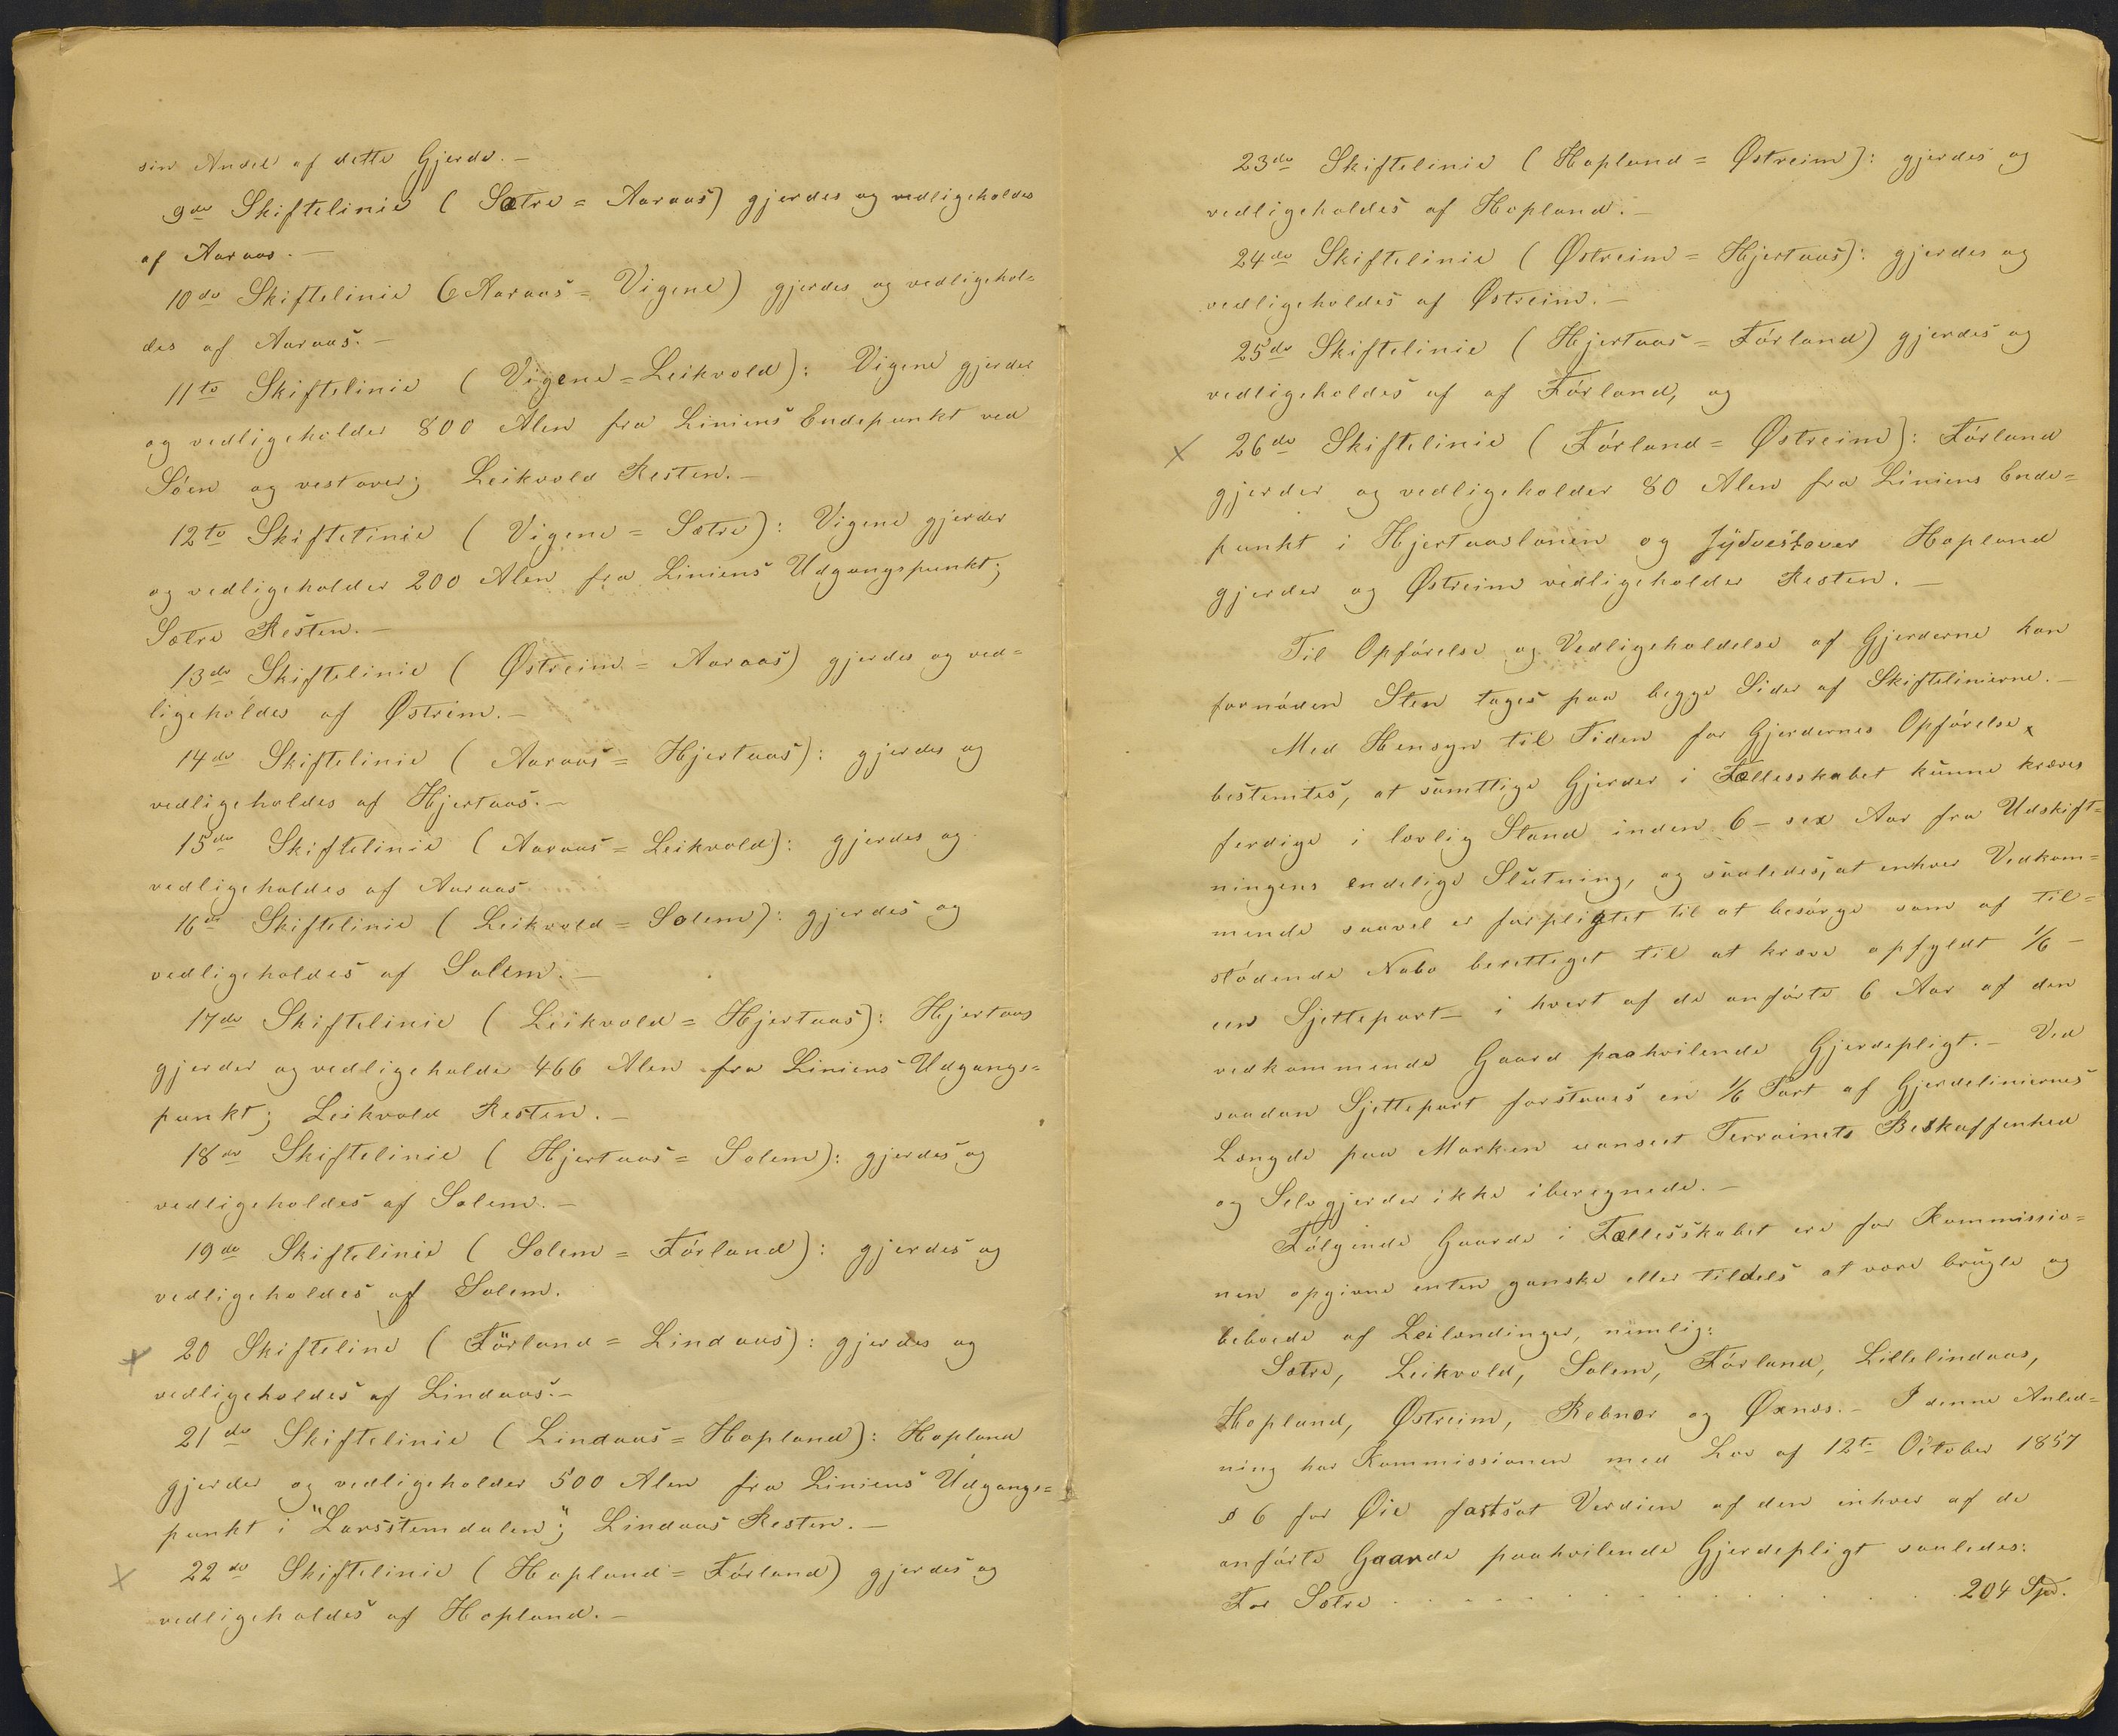 sin Andel af dette Gjerde.-
9de Skiftelinie ( Sætre = Aaraas) gjerdes og vedligeholdes
af Aaraas.-
10de Skiftelinie (Aaraas = Vigene) gjerdes og vedligehol=
des af Aaraas.-
11te Skiftelinie ( Vigene = Leikvold): Vigene gjerder
og vedligeholder 800 Alen fra Liniens Endepunkt ved
Söen og vestover; Leikvold Resten.-
12te Skiftelinie ( Vigene = Sætre): Vigene gjerder
og vedligeholder 200 Alen fra Liniens Udgangspunkt;
Sætre Resten.-
13de Skiftelinie ( Østreim = Aaraas) gjerdes og ved=
ligeholdes af Østreim.-
14de Skiftelinie ( Aaraas = Hjertaas): gjerdes og
vedligeholdes af Hjertaas.-
15de Skiftelinie ( Aaraas = Leikvold): gjerdes og
vedligeholdes af Aaraas
16de Skiftelinie ( Leikvold = Solem): gjerdes og
vedligeholdes af Solem.-
17de Skiftelinie ( Leikvold = Hjertaas): Hjertaas
gjerder og vedligeholde 466 Alen fra Liniens Udgangs=
punkt; Leikvold Resten.-
18de Skiftelinie ( Hjertaas = Solem): gjerdes og
vedligeholdes af Solem.-
19de Skiftelinie ( Solem = Förland): gjerdes og
vedligeholdes af Solem.
x 20 Skifteline ( Förland = Lindaas): gjerdes og
vedligeholdes af Lindaas.-
21de Skiftelinie ( Lindaas = Hopland): Hopland
gjerder og vedligeholder 500 Alen fra Liniens Udgangs=
punkt i "Larsstemdalen"; Lindaas Resten.-
x 22de Skiftelinie ( Hopland = Förland) gjerdes og
vedligeholdes af Hopland.-
23de Skiftelinie ( Hopland = Østreim): gjerdes og
vedligeholdes af Hopland.-
24de Skiftelinie ( Østreim = Hjertaas): gjerdes og
vedligeholdes af Østreim.-
25de Skiftelinie ( Hjertaas = Förland) gjerdes og
vedligeholdes af af Förland, og
x 26de Skiftelinie ( Förland = Østreim): Förland
gjerder og vedligeholder 80 Alen fra Liniens Ende=
punkt i Hjertaaslonen og Sydvestover Hopland
gjerder og Østreim vedligeholder Resten.-
Til Opförelse og Vedligeholdelse af Gjerderne kan
fornöden Sten tages paa begge Sider af Skiftelinierne.-
Med Hensyn til Tiden for Gjerdernes Opförelse,
bestemtes, at samttlige Gjerder i Fællesskabet kunne kræves
ferdige i lovlig Stand inden 6 - sex Aar fra Udskift=
ningens endelige Slutning, og saaledes, at enhver Vedkom=
mende saavel er forpligtet til at besörge som af til=
stödende Nabo berettiget til at kræve opfyldt 1/6 -
een Sjettepart - i hvert af de anförte 6 Aar af den
vedkommende Gaard paahvilende Gjerdepligt.- Ved
saadan Sjettepart forstaaes en 1/6 Part af Gjerdeliniernes
Længde paa Marken uanseet Terrainets Beskaffenhed
og Selvgjerder ikke iberegnede.-
Fölgende Gaarde i Fællesskabet ere for Kommissio=
nen opgivne enten ganske eller tildels at være brugte og
beboede af Leilændinger, nemlig:
Sætre, Leikvold, Solem, Förland, Lillelindaas,
Hopland, Østreim, Rebnor og Øxnæs.- I denne Anled=
ning har Kommissionen med Lov af 12te October 1857
§ 6 for Øie fastsat Verdien af den enhver af de
anförte Gaarde paahvilende Gjerdepligt saaledes:
For Sætre . . . . . . . . . . . . . 204 Spd.